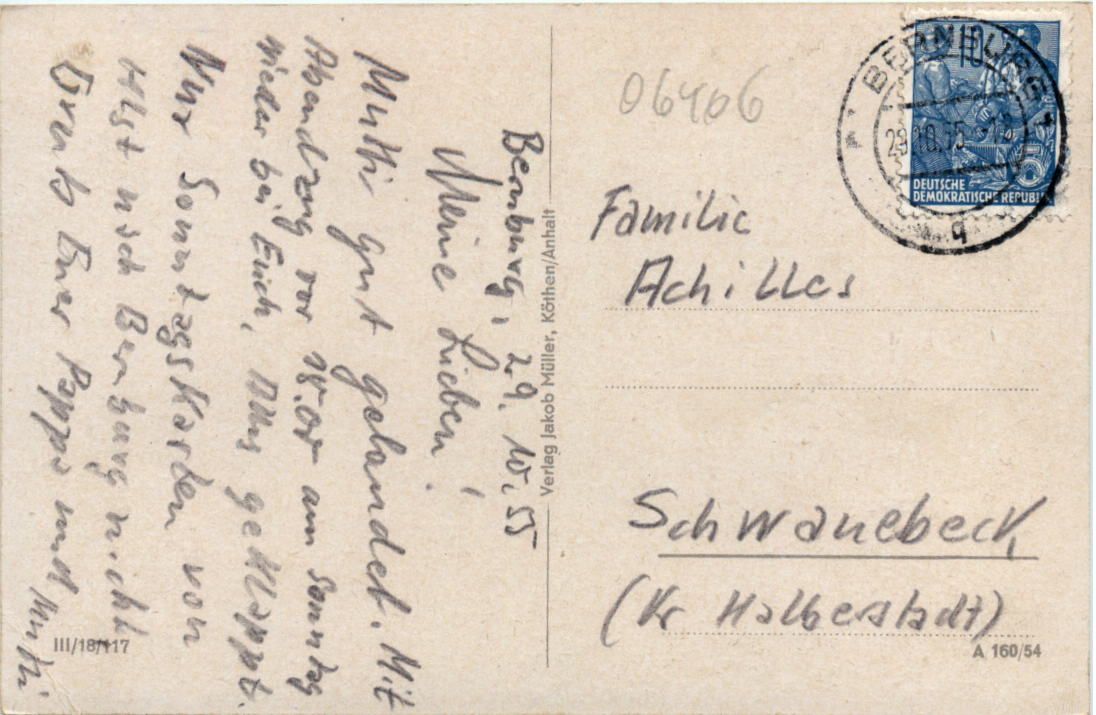 Bernburg, 29.10.55
Meine Lieben!
Mutti gut gelandet. Mit
Abendzug vor 18.00 am Sonntag
wieder bei Euch, Alles geklappt.
Nur Sonntagskarten von
nach Bernburg nicht
Gruß Euer Pappa und Mutti
III/18/117
Verlag Jakob Müller, Köthen/Anhalt
06406
BERNBURG
29.10.55
q
10
DEUTSCHE
DEMOKRATISCHE REPUBLIK
Familie
Achilles
Schwanebeck
(Kr Halberstadt)
A 160/54